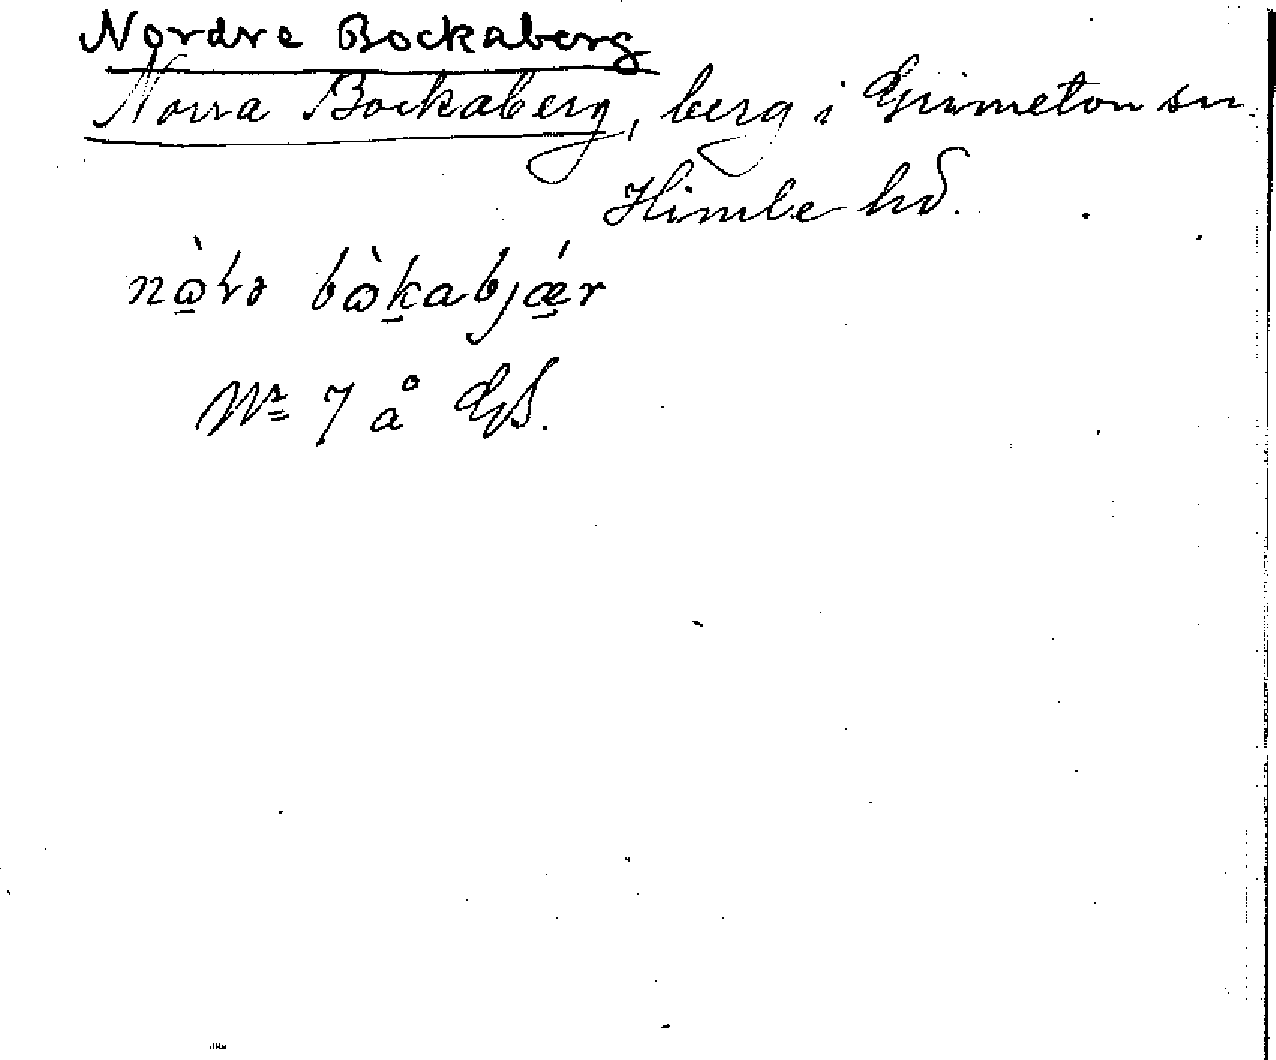 Nordre Bockaberg
Norra Bockaberg, berg i Grimeton sn
Himle hd.
bòkabjǽr
Nr 7 å GS.